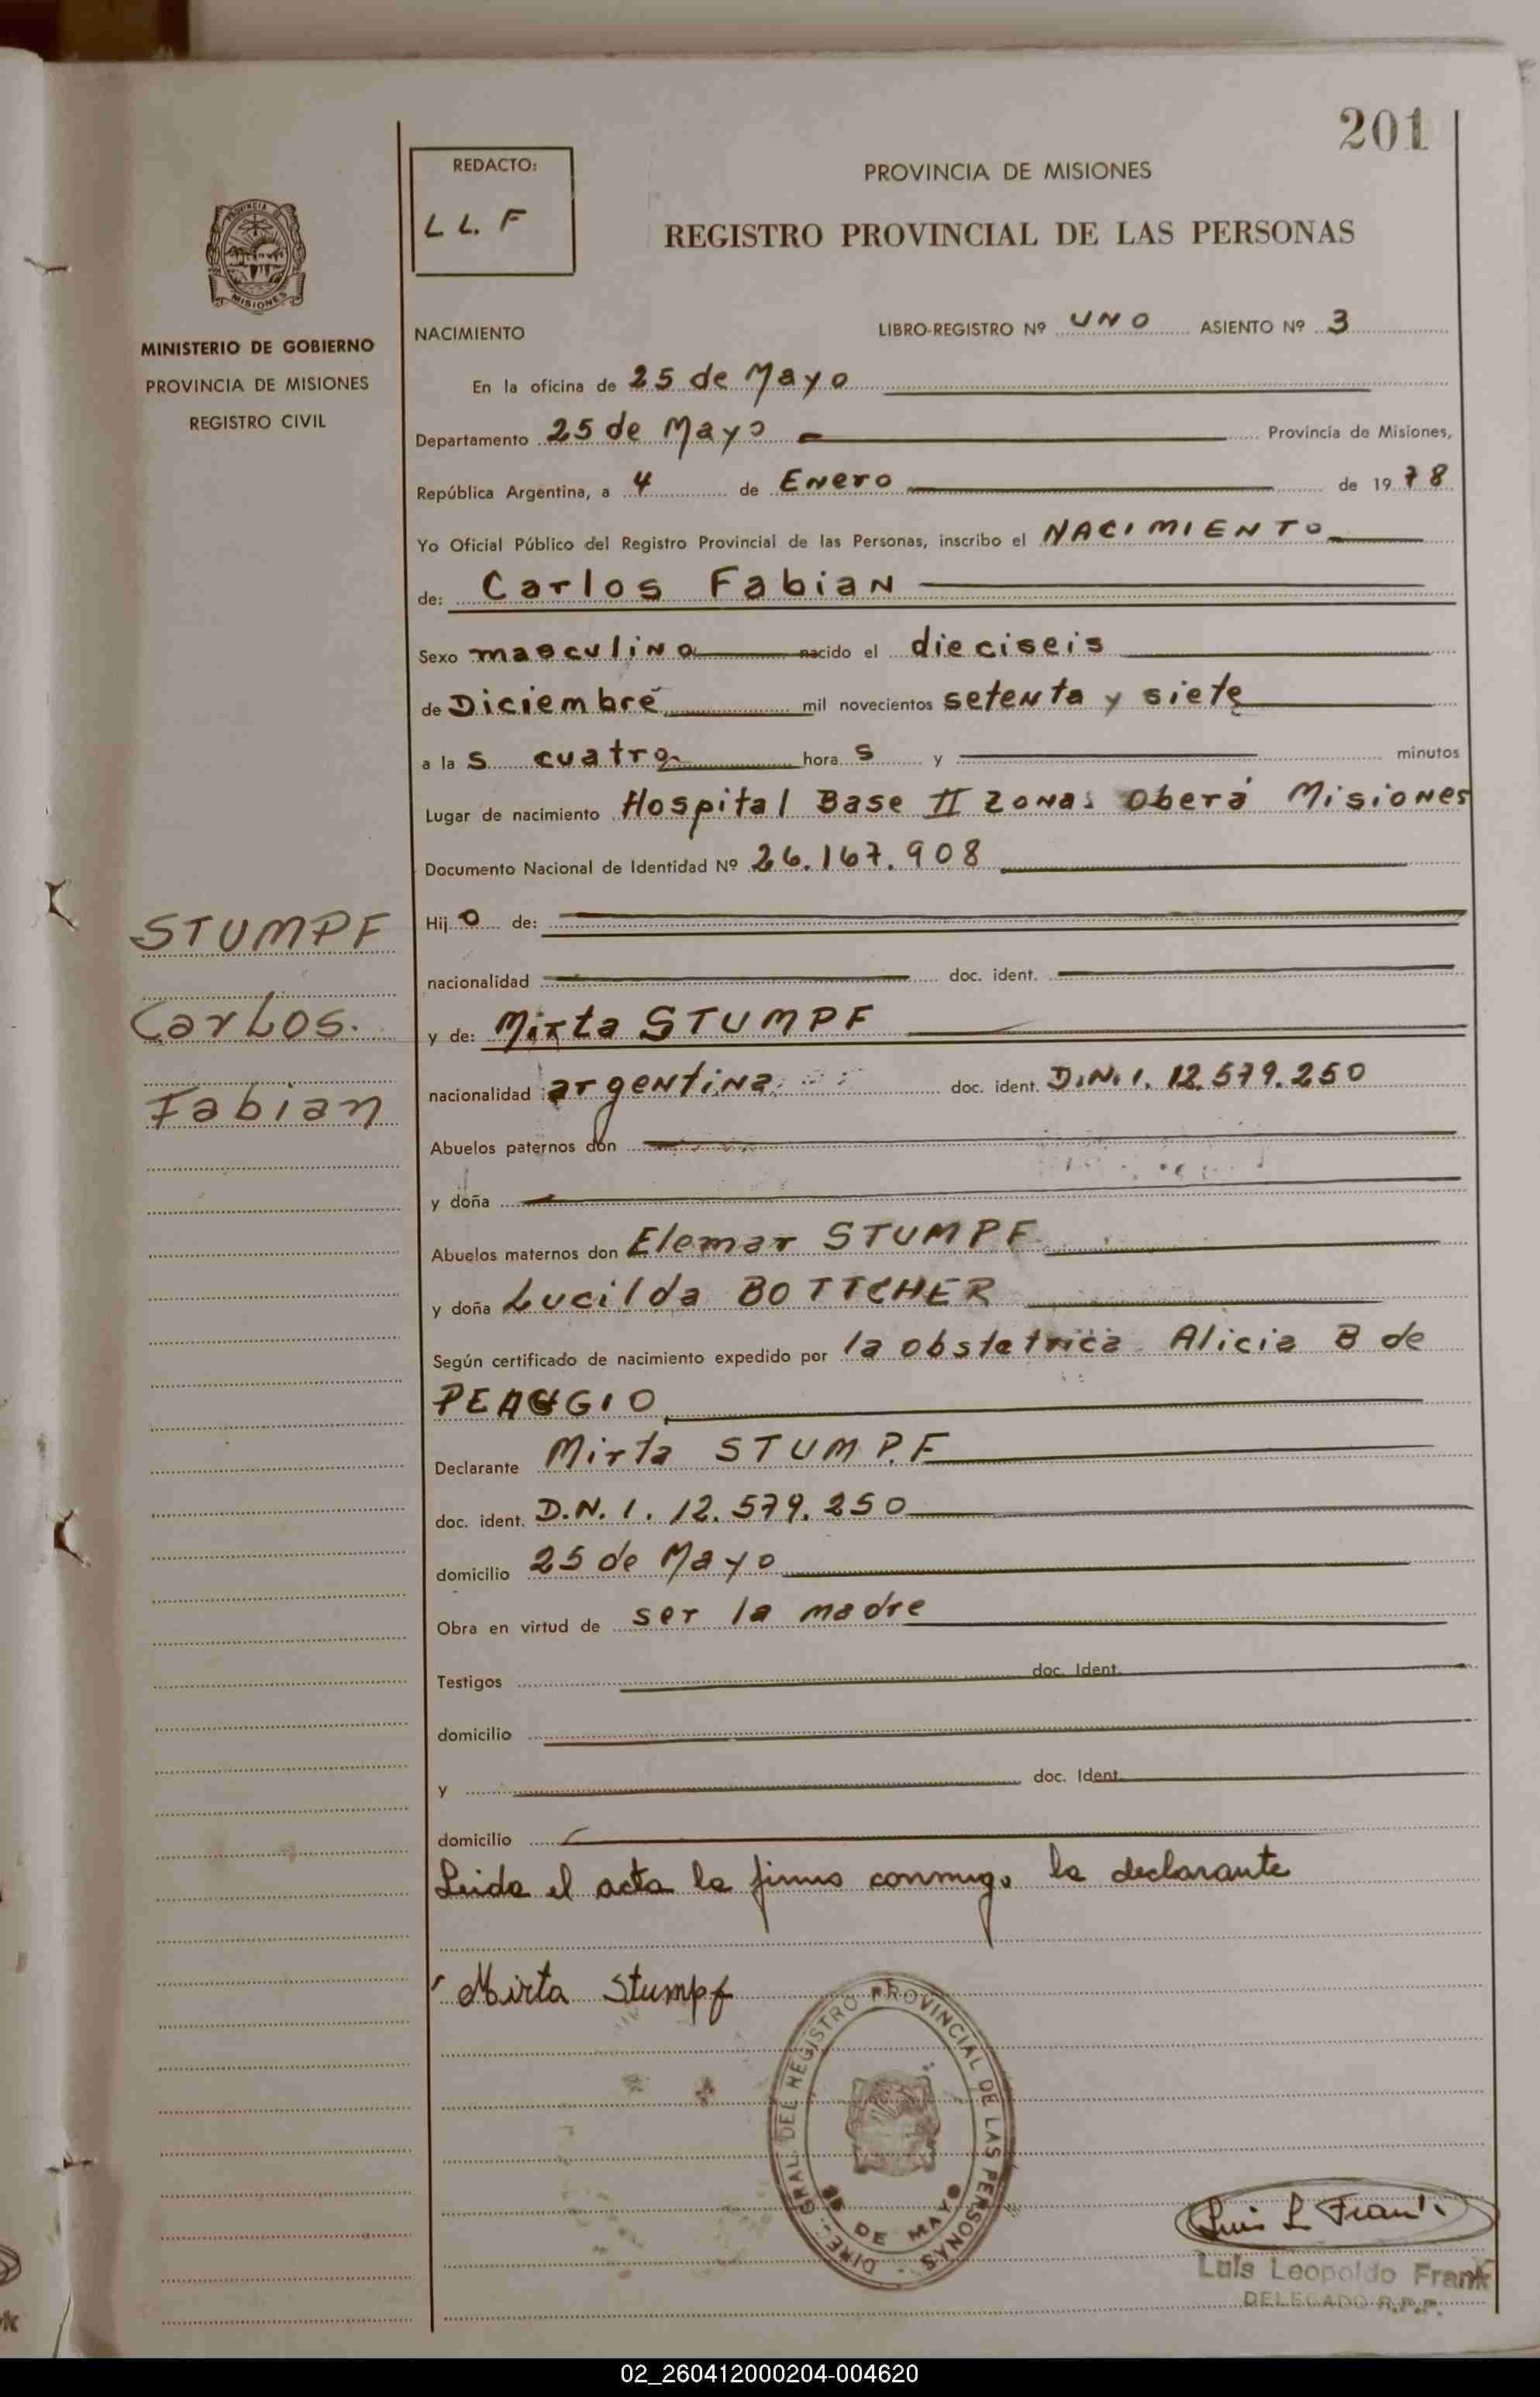 201
REDACTO:
LL. F
PROVINCIA DE MISIONES
REGISTRO PROVINCIAL DE LAS PERSONAS
PROVINCIA DE
MISIONES
MINISTERIO DE GOBIERNO
PROVINCIA DE MISIONES
REGISTRO CIVIL
NACIMIENTO LIBRO-REGISTRO Nº UNO ASIENTO Nº 3
En la oficina de 25 de Mayo
Departamento 25 de Mayo Provincia de Misiones,
República Argentina, a 4 de Enero de 1978
Yo Oficial Público del Registro Provincial de las Personas, inscribo el NACIMIENTO
de: Carlos Fabian
Sexo masculino nacido el dieciseis
de Diciembre mil novecientos setenta y siete
a las cuatro horas y minutos
Lugar de nacimiento Hospital Base II Zona. Oberá Misiones
Documento Nacional de Identidad Nº 26.167.908
STUMPF
Carlos.
Fabian
Hijo de:
nacionalidad doc. ident.
y de: Mirta STUMPF
nacionalidad argentina doc. ident. D.N.I. 12.579.250
Abuelos paternos don
y doña
Abuelos maternos don Elemar STUMPF
y doña Lucilda BOTTCHER
Según certificado de nacimiento expedido por la obstetrica Alicia B de
PEAGGIO
Declarante Mirta STUMPF
doc. ident. D.N.I. 12.579.250
domicilio 25 de Mayo
Obra en virtud de ser la madre
Testigos doc. Ident.
domicilio
y doc. Ident.
domicilio
Leida el acta la firma conmigo la declarante
Mirta Stumpf
DIREC. GRAL. DEL REGISTRO PROVINCIAL DE LAS PERSONAS
25 DE MAYO
Luis L Frank
Luis Leopoldo Frank
DELEGADO R.P.P.
02_260412000204-004620